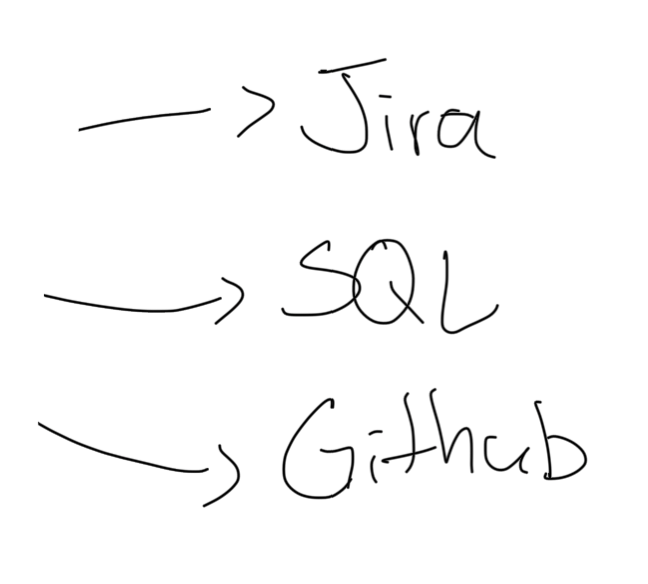 → Jira
→ SQL
→ Github